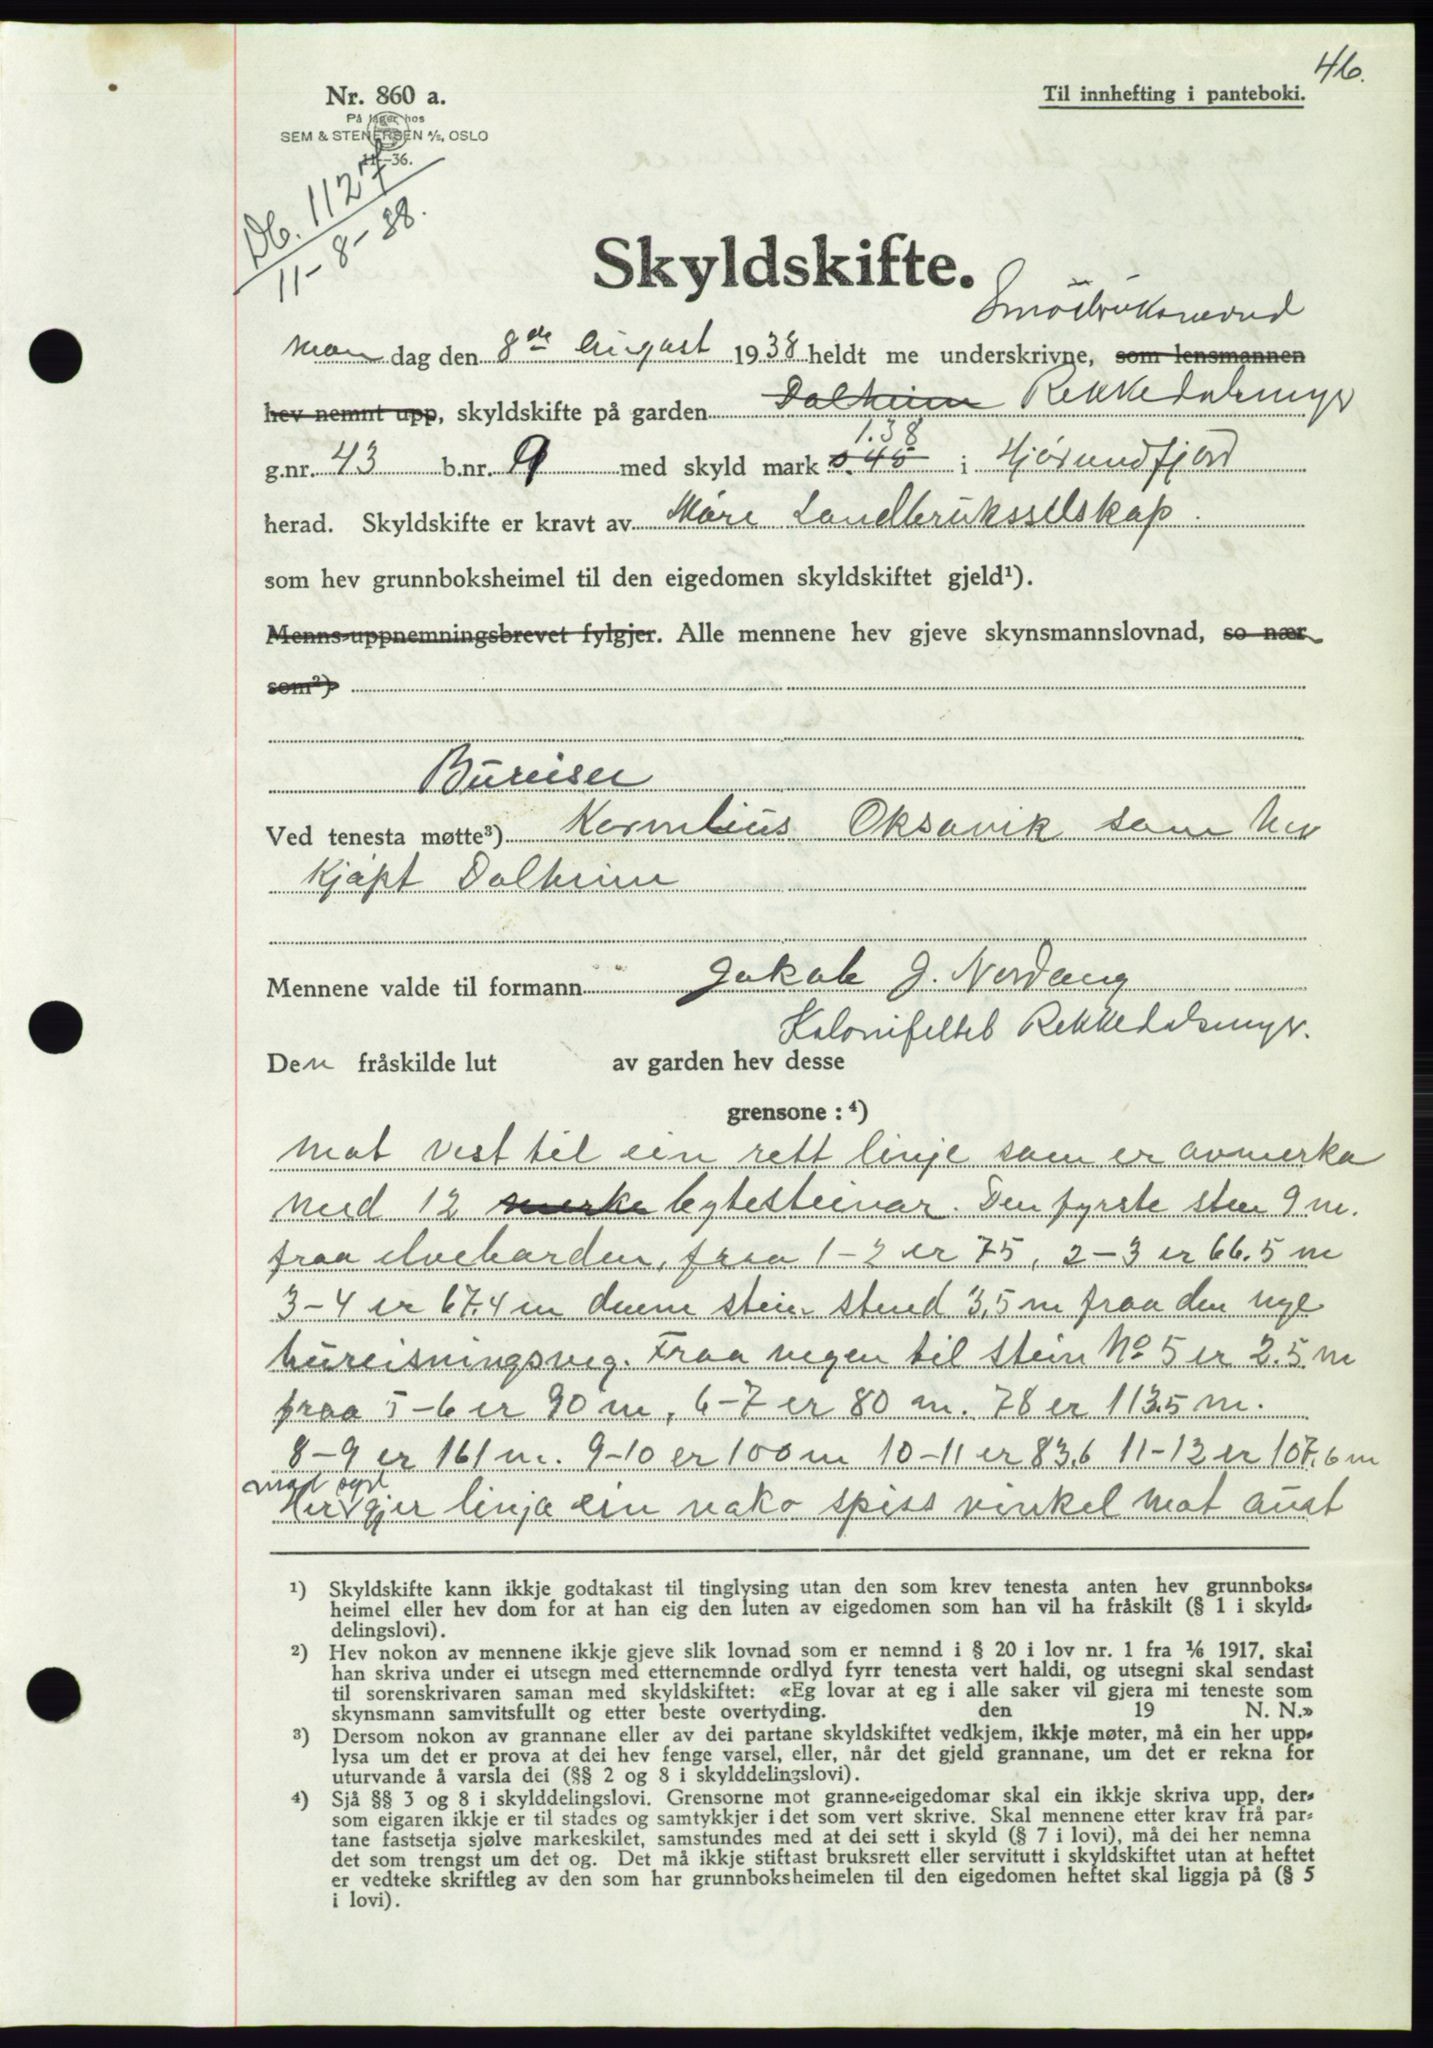 46.
Nr. 860 a.
Til innhefting i panteboki.
På lager hos
SEM & STENERSEN A/S, OSLO
11-36.
Db. 1127
11-8-38.
Skyldskifte.
Småbruksnevnd
Mandag den 8de August 1938 heldt me underskrivne, som lensmannen
hev nemnt upp, skyldskifte på garden Dalheim Rekkedalsmyr
1.38
g.nr. 43 b.nr. 9 med skyld mark 0.45 i Hjørundfjord
herad. Skyldskifte er kravt av Møre Landbruksselskap.
som hev grunnboksheimel til den eigedomen skyldskiftet gjeld¹).
Menns-uppnemningsbrevet fylgjer. Alle mennene hev gjeve skynsmannslovnad, so nær
som²)
Bureiser
Ved tenesta møtte³) Kornelius Oksavik som hev
kjøpt Dalheim
Mennene valde til formann Jakob J. Nordang
Kolonifeltet Rekkedalsmyr.
Den fråskilde lut av garden hev desse
grensone: ⁴)
mot vest til ein rett linje som er avmerka
med 12 merke bytesteinar. Den fyrste stein 9 m.
fraa elvebarden, fraa 1-2 er 75, 2-3 er 66.5 m
3-4 er 67.4 m denne stein stend 3,5 m fraa den nye
bureisningsveg. Fraa vegen til stein No 5 er 2.5 m
fraa 5-6 er 90 m, 6-7 er 80 m. 78 er 113.5 m.
8-9 er 161 m. 9-10 er 100 m 10-11 er 83.6 11-12 er 107.6 m
mod syd
Her gjer linja ein nako spiss vinkel mot aust
¹) Skyldskifte kann ikkje godtakast til tinglysing utan den som krev tenesta anten hev grunnboks-
heimel eller hev dom for at han eig den luten av eigedomen som han vil ha fråskilt (§ 1 i skyld-
delingslovi).
²) Hev nokon av mennene ikkje gjeve slik lovnad som er nemnd i § 20 i lov nr. 1 fra 1/6 1917, skal
han skriva under ei utsegn med etternemnde ordlyd fyrr tenesta vert haldi, og utsegni skal sendast
til sorenskrivaren saman med skyldskiftet: «Eg lovar at eg i alle saker vil gjera mi teneste som
skynsmann samvitsfullt og etter beste overtyding. den 19 N. N.»
³) Dersom nokon av grannane eller av dei partane skyldskiftet vedkjem, ikkje møter, må ein her upp-
lysa um det er prova at dei hev fenge varsel, eller, når det gjeld grannane, um det er rekna for
uturvande å varsla dei (§§ 2 og 8 i skylddelingslovi).
⁴) Sjå §§ 3 og 8 i skylddelingslovi. Grensorne mot granne-eigedomar skal ein ikkje skriva upp, der-
som eigaren ikkje er til stades og samtykkjer i det som vert skrive. Skal mennene etter krav frå par-
tane fastsetja sjølve markeskilet, samstundes med at dei sett i skyld (§ 7 i lovi), må dei her nemna
det som trengst um det og. Det må ikkje stiftast bruksrett eller servitutt i skyldskiftet utan at heftet
er vedteke skriftleg av den som har grunnboksheimelen til den eigedomen heftet skal liggja på (§ 5
i lovi).